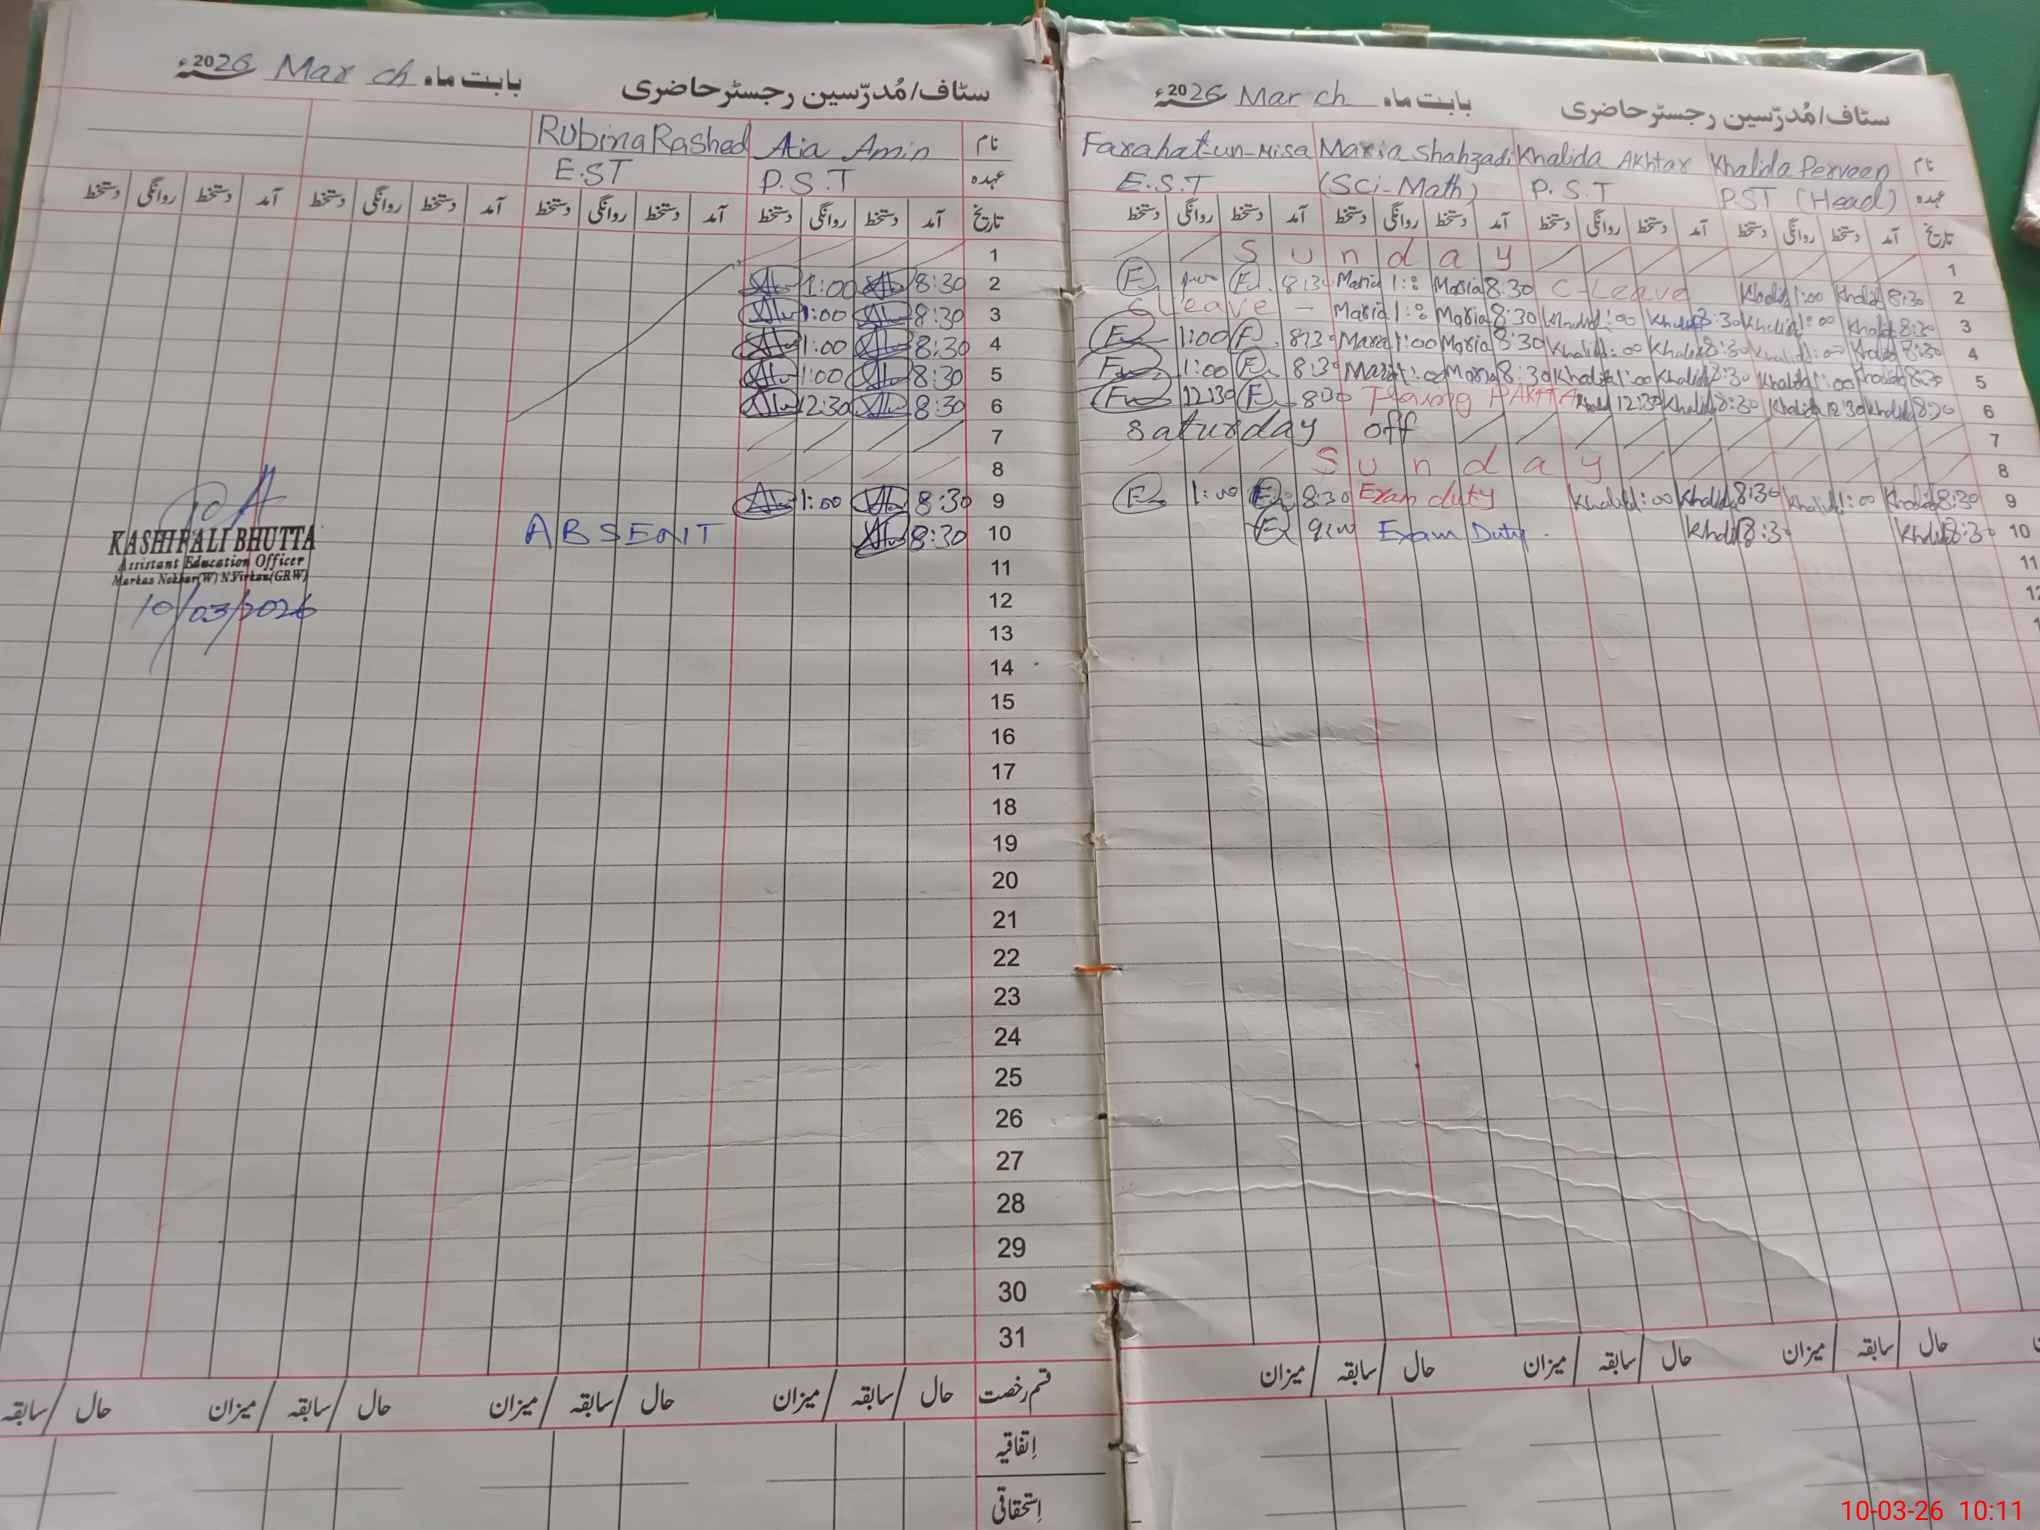 سٹاف/مُدرّسین رجسٹرحاضری بابت ماہ March 2026ء
نام Khalida Perveen Khalida Akhtar Maria Shahzadi Farahat-un-Nisa
عہدہ PST (Head) P.S.T (Sci-Math) E.S.T
تاریخ آمد دستخط روانگی دستخط آمد دستخط روانگی دستخط آمد دستخط روانگی دستخط آمد دستخط روانگی دستخط
1 Sunday
2 8:30 Khalid 1:00 Khalid C-Leave 8:30 Maria 1:00 Maria 8:30
3 8:30 Khalid 1:00 Khalid 8:30 Khalid 1:00 Khalid 8:30 Maria 1:00 Maria C Leave
4 8:30 Khalid 1:00 Khalid 8:30 Khalid 1:00 Khalid 8:30 Maria 1:00 Maria 8:30 1:00
5 8:30 Khalid 1:00 Khalid 8:30 Khalid 1:00 Khalid 8:30 Maria 1:00 Maria 8:30 1:00
6 8:30 Khalid 12:30 Khalid 8:30 Khalid 12:30 8:30 12:30
7 Saturday off
8 Sunday
9 8:30 Khalid 1:00 Khalid 8:30 Khalid 1:00 Khalid Exam duty 8:30 1:00
10 8:30 Khalid 8:30 Khalid Exam Duty. 9:00
11
12
میزان / سابقہ / حال میزان / سابقہ / حال میزان / سابقہ / حال
سٹاف/مُدرّسین رجسٹرحاضری بابت ماہ March 2026ء
نام Amin Rubina Rashed
عہدہ P.S.T E.S.T
تاریخ آمد دستخط روانگی دستخط آمد دستخط روانگی دستخط آمد دستخط روانگی دستخط آمد دستخط روانگی دستخط
1
2 8:30 1:00
3 8:30 1:00
4 8:30 1:00
5 8:30 1:00
6 8:30 12:30
7
8
9 8:30 1:00
10 8:30 ABSENT
KASHIF ALI BHUTTA
Assistant Education Officer
Markaz Nokhar(W) N.Virkan(GRW)
10/03/2026
11
12
13
14
15
16
17
18
19
20
21
22
23
24
25
26
27
28
29
30
31
قسم رخصت حال / سابقہ / میزان حال / سابقہ / میزان حال / سابقہ / میزان حال / سابقہ
اِتفاقیہ
اِستحقاقی
10-03-26 10:11